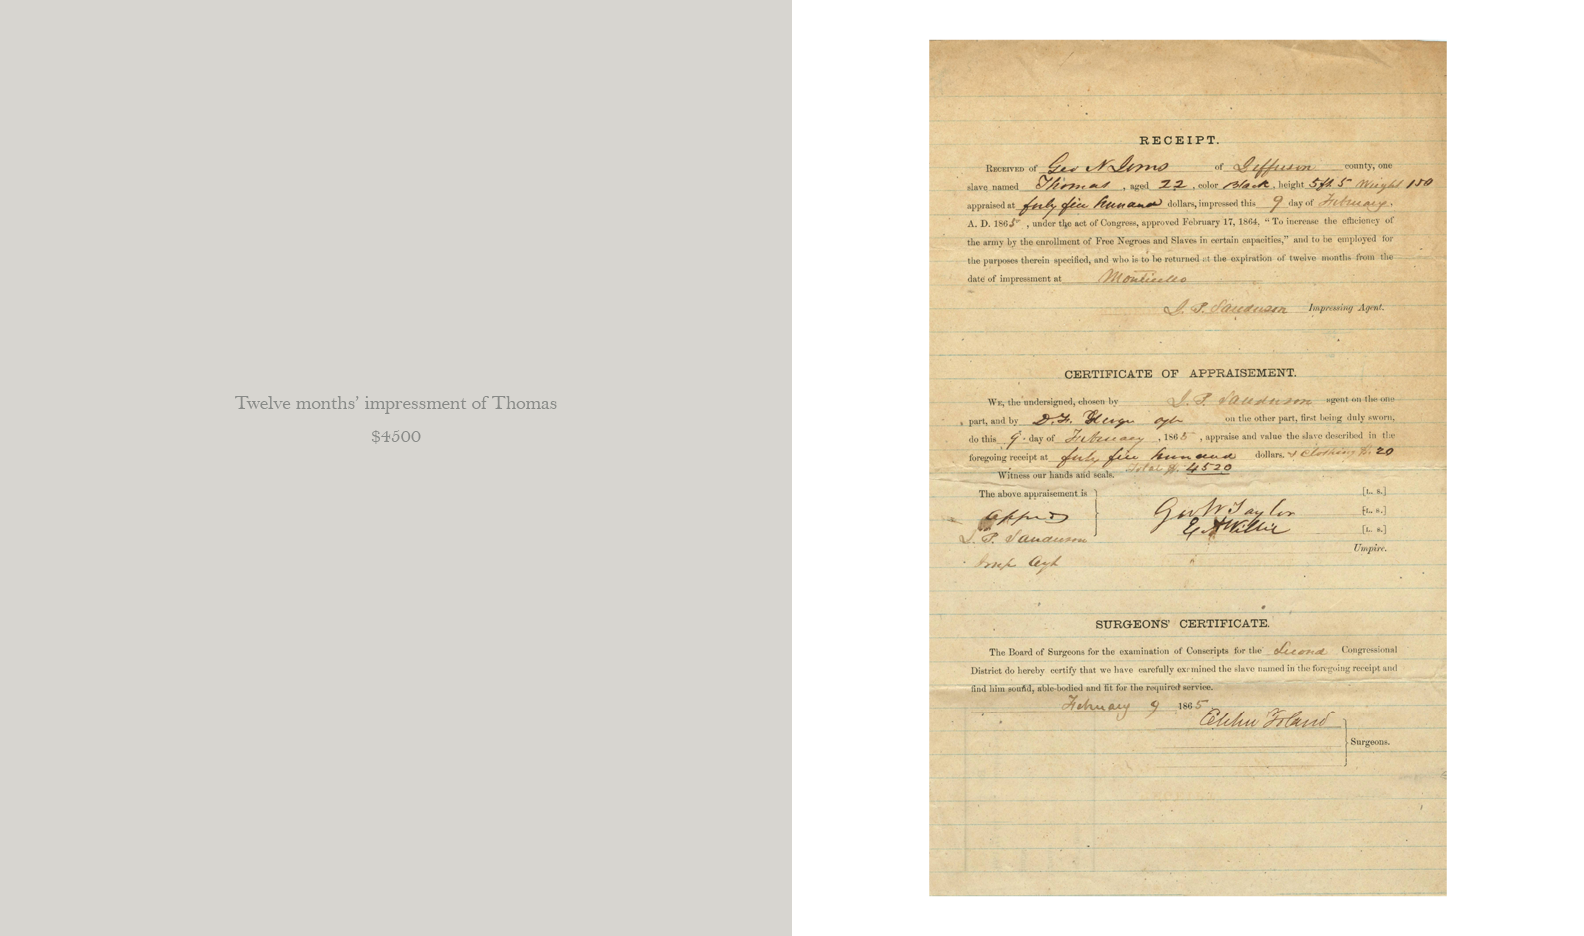 Twelve months’ impressment of Thomas
$4500
RECEIPT.
RECEIVED of Geo N of Jefferson county, one
slave named Thomas, aged 22, color Black, height 5ft 5 Weight 150
appraised at forty five hundred dollars, impressed this 9 day of February,
A. D. 1865, under the act of Congress, approved February 17, 1864, “To increase the efficiency of
the army by the enrollment of Free Negroes and Slaves in certain capacities,” and to be employed for
the purposes therein specified, and who is to be returned at the expiration of twelve months from the
date of impressment at Monticello
J. P. Sanderson Impressing Agent.
CERTIFICATE OF APPRAISEMENT.
WE, the undersigned, chosen by J. P. Sanderson agent on the one
part, and by on the other part, first being duly sworn,
do this 9 day of February, 1865, appraise and value the slave described in the
foregoing receipt at forty five hundred dollars. & Clothing $. 20
Witness our hands and seals. Total $. 4520
The above appraisement is
Geo W Taylor [L. S.]
[L. S.]
J. P. Sanderson [L. S.]
Umpire.
SURGEONS’ CERTIFICATE.
The Board of Surgeons for the examination of Conscripts for the Second Congressional
District do hereby certify that we have carefully examined the slave named in the foregoing receipt and
find him sound, able-bodied and fit for the required service.
February 9 1865
Surgeons.